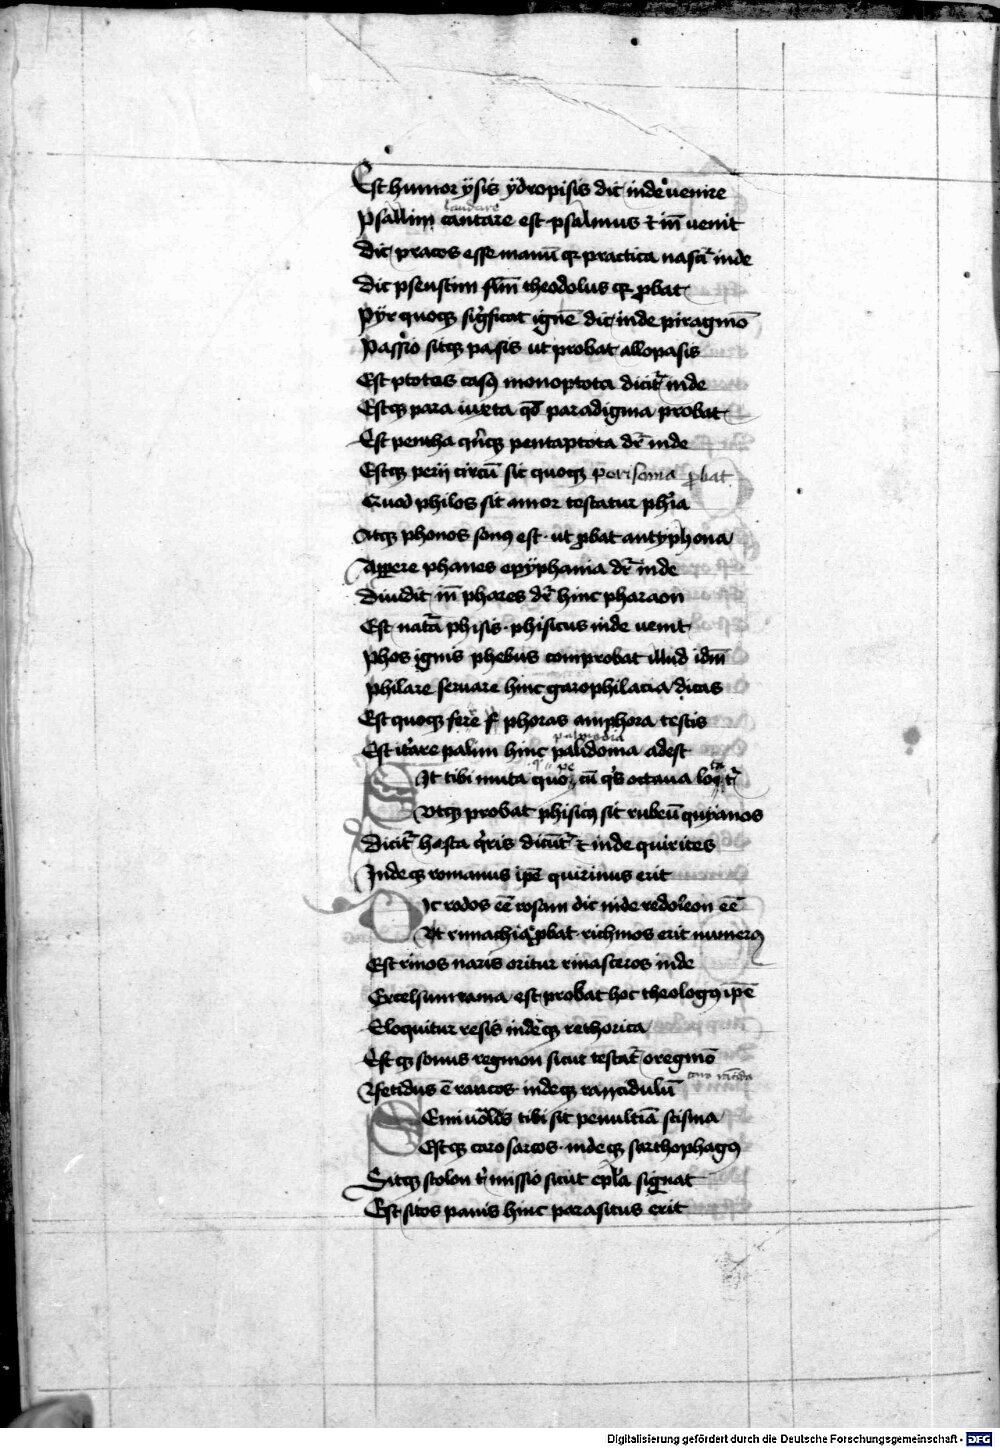 Est humor ysis ydropisis dic inde uenire
laudare
Psallim cantare est psalmus et in̄ uenit
Dic pracos esse manū qr practica nasciť inde
Dic pseustim falsū theodolus qr probat
Pyr quoqʒ significat ignē dic inde piragmō
Passio sitqʒ pasis ut probat allopasis
Est ptotos casꝰ monoptota diciť inde
Estqʒ para iuxta qd̄ paradigma probat
Est pentha qn̄qʒ pentaptota dr̄ inde
Estqʒ perij circū sic quoqʒ perisoma ꝓbat
Quod philos sit amor testatur phīa
Atqʒ phonos sonꝰ est ut ꝓbat antyphona
Appere phanes epyphania dr̄ inde
Diuidit in̄ phares dr̄ hinc pharaon
Est natā phisis phisicus inde uenit
Phos ignis phebus comprobat illud idm̄
Philare seruare hinc garophilacia dicas
Est quoqʒ ferre phoras amphora testis
palinodia
Est itare palim hinc palidoma adest
Sit tibi muta quoqʒ cū qͥs octaua locať
Vtqʒ probat phisicꝰ sit rubeū quianos
Diciť hasta qͥris dicūť et inde quirites
Indeqʒ romanus ipē quirinus erit
Dic rodos eē rosam dic inde redoleon eē
Vt rimachia ꝓbat richmos erit numerꝰ
Est rinos naris oritur rinasceros inde
Excelsum rama est probat hoc theologꝰ ipē
Eloquitur resis indeqʒ rethorica
Est qʒ sonus regmon sicut testať oregmō
Fetidus ē rancos indeqʒ rancidulū
Semiuocalis tibi sit penultīa scisma
Estqʒ caro sarcos indeqʒ sarcophagꝰ
Sitqʒ stolon missio sicut epl̄a signat
Est sitos panis hinc parasitus erit
Digitalisierung gefördert durch die Deutsche Forschungsgemeinschaft - DFG